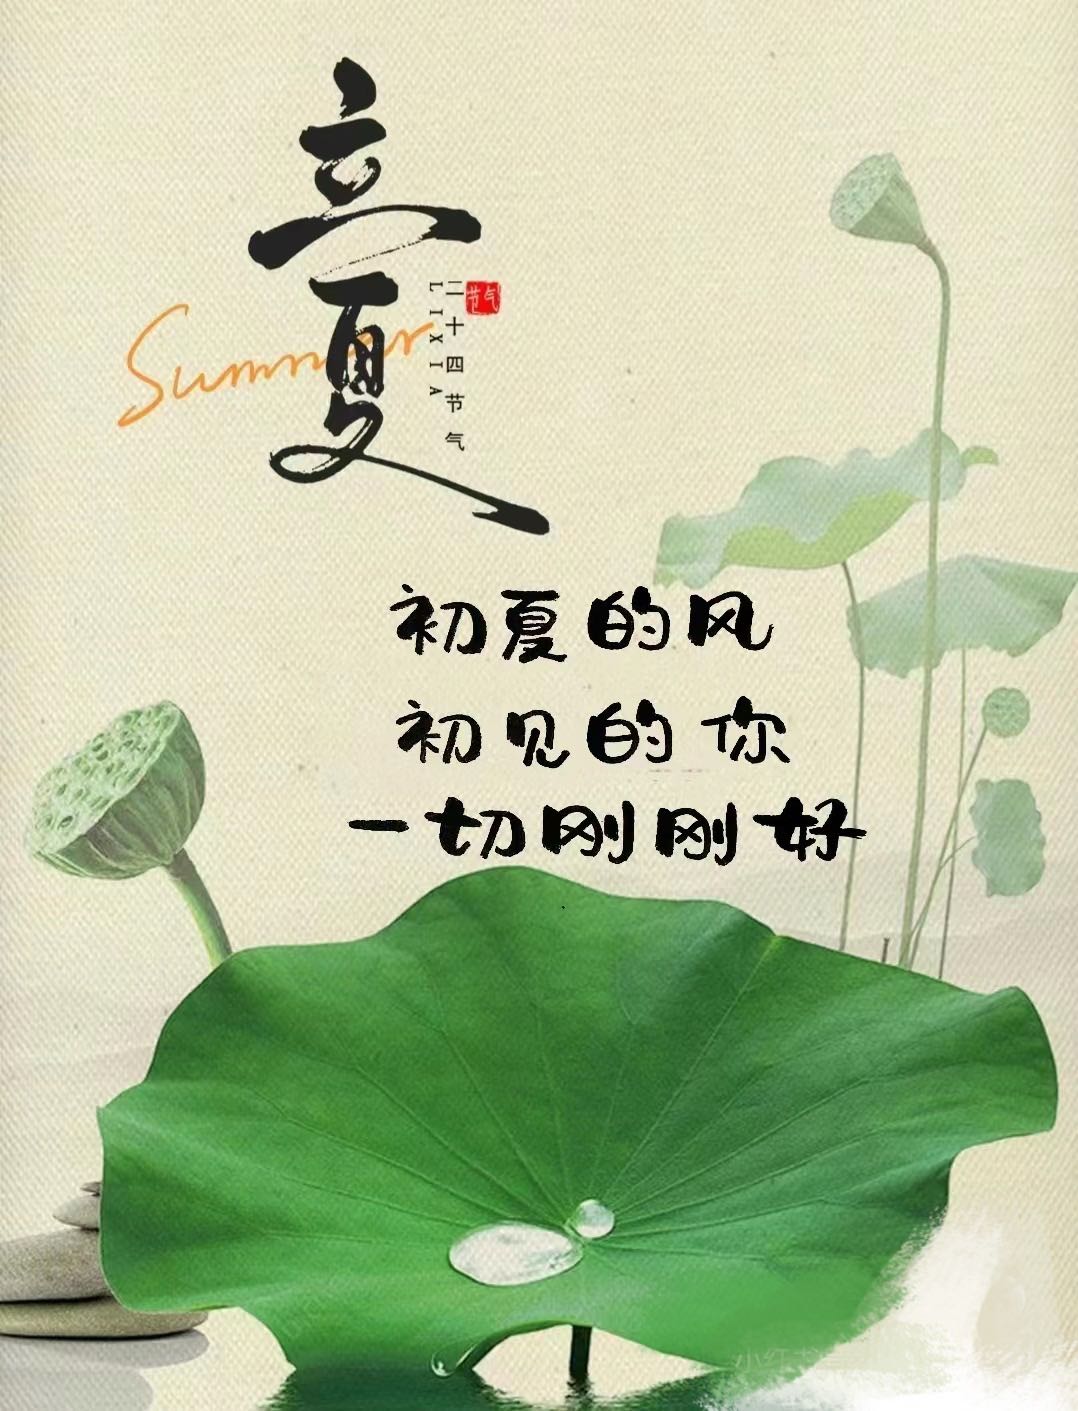 立夏
Summer
LIXIA
二十四节气
节气
初夏的风
初见的你
一切刚刚好